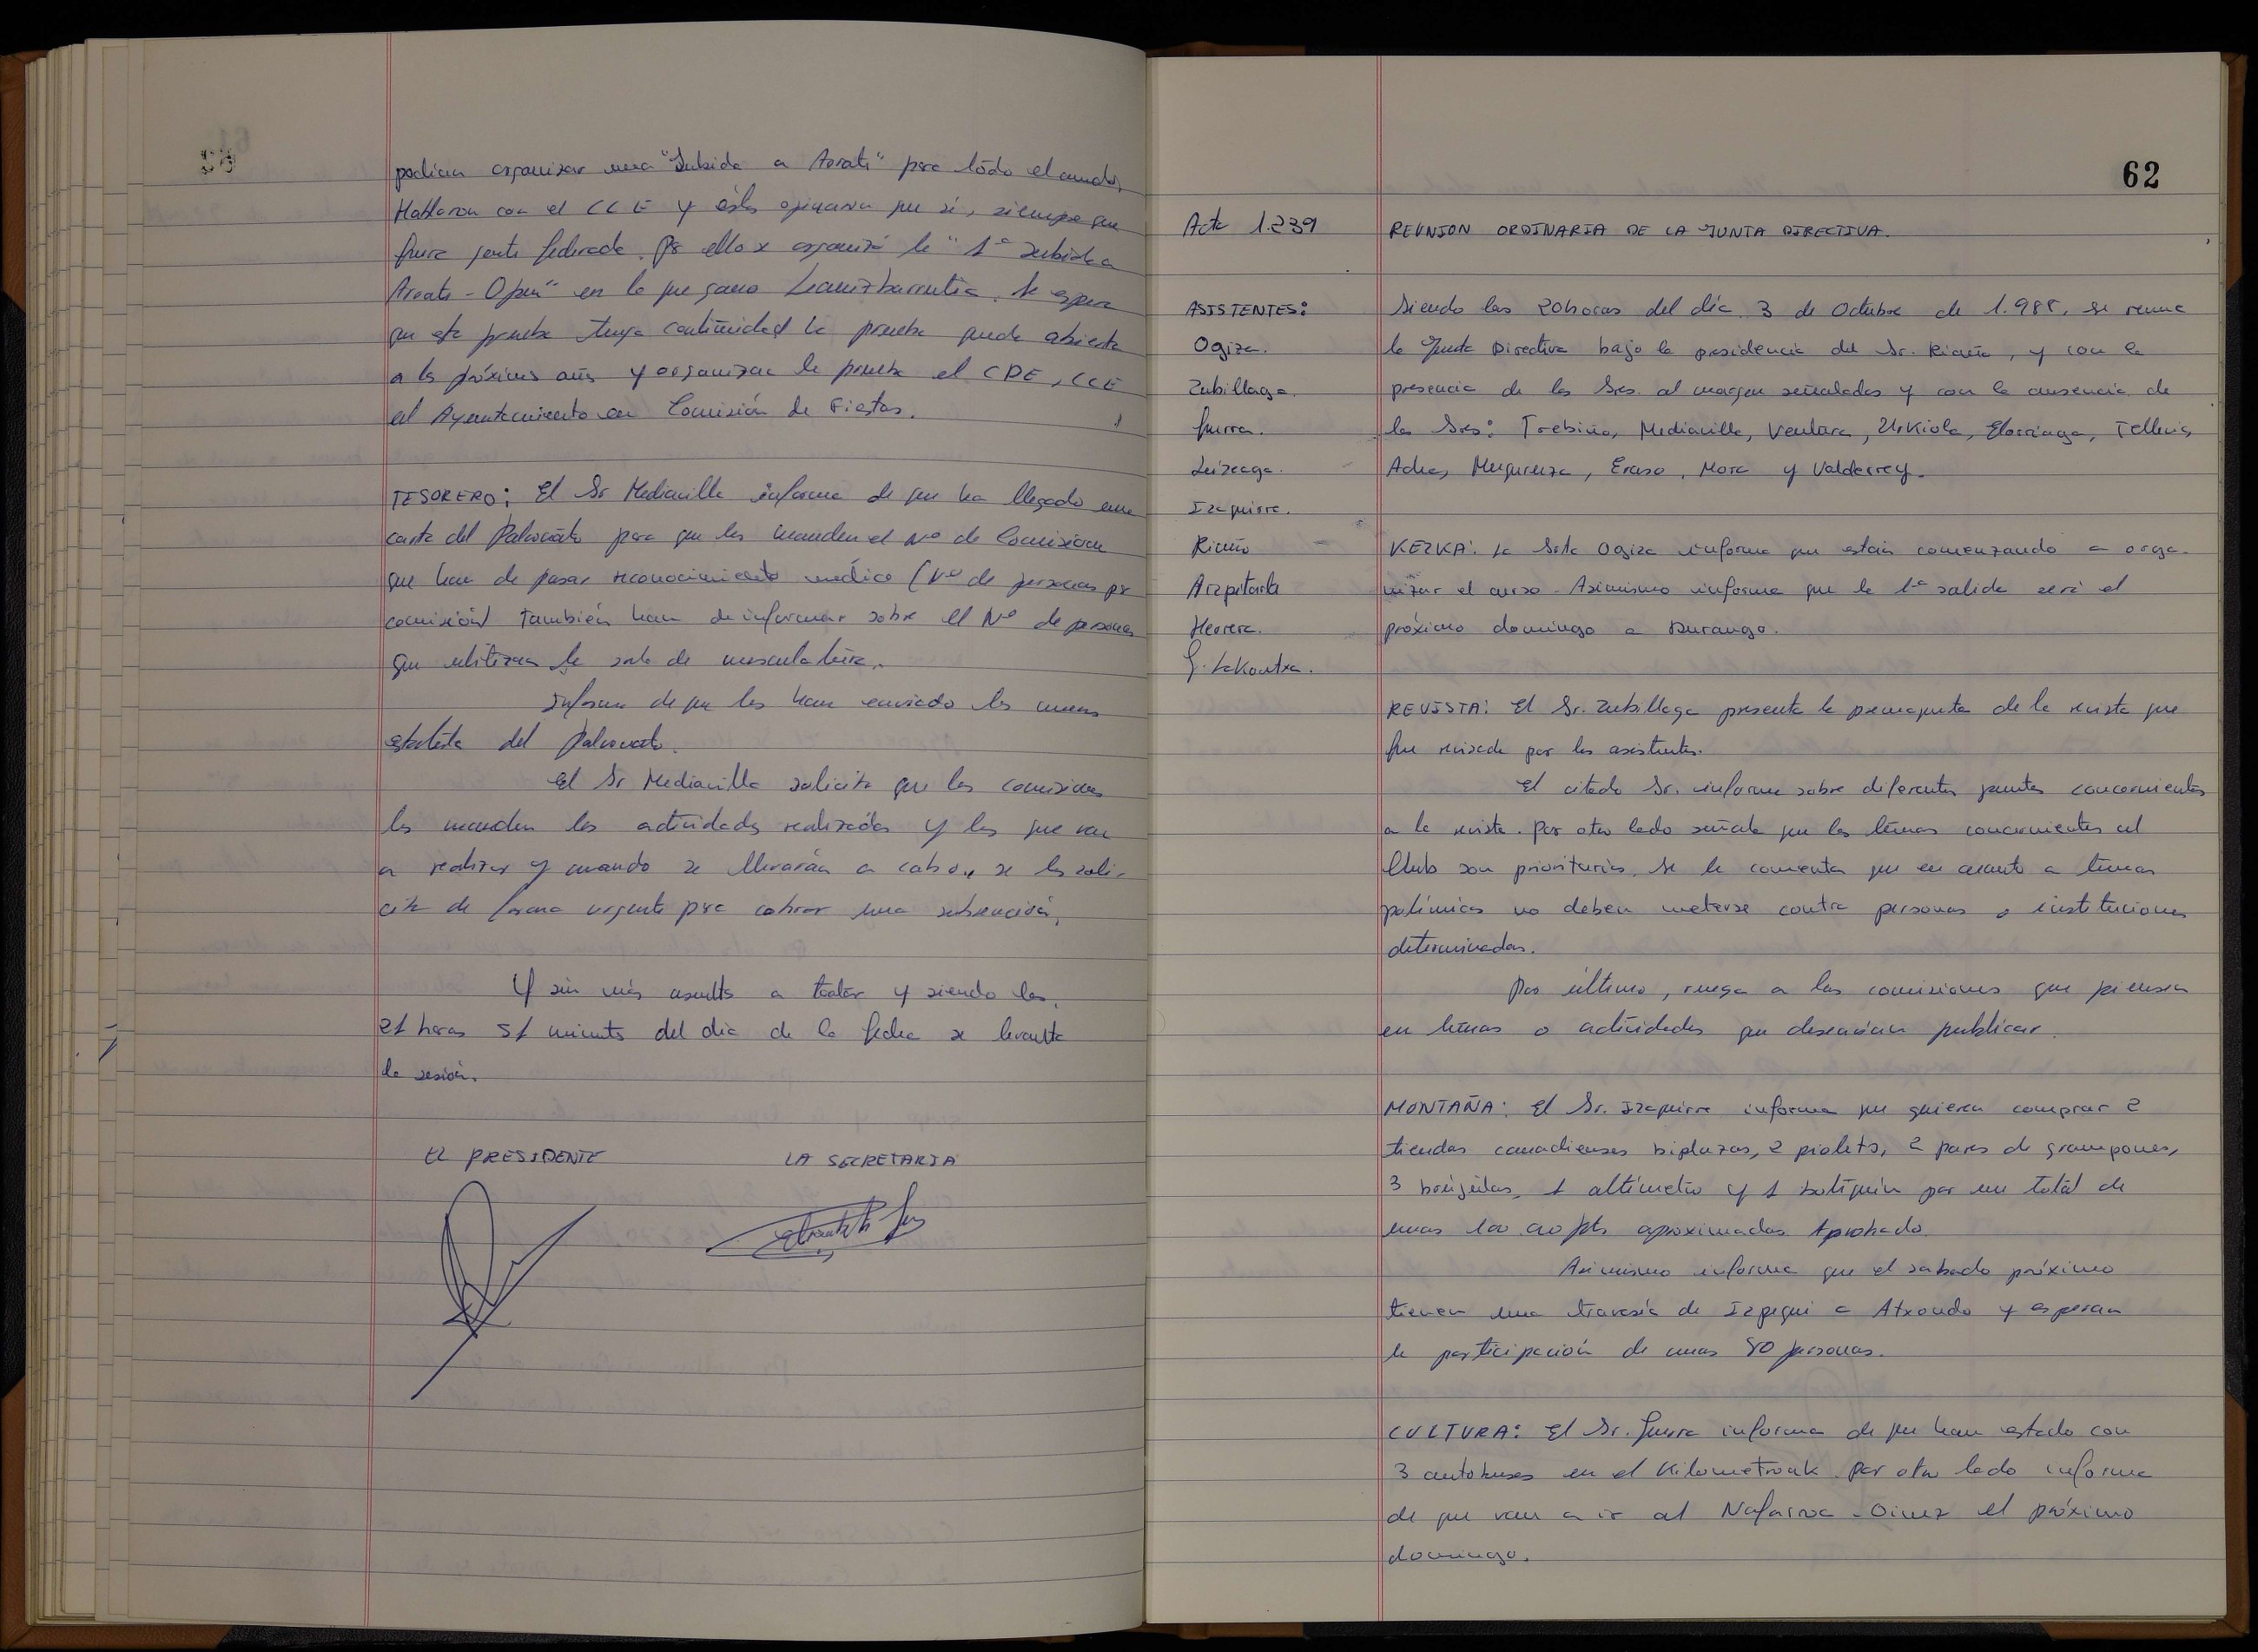 podian organizar una "Subida a Arrate" para todo el mundo,
Hablaron con el CCE y éstos opinaron que si, siempre que
fuera gente federada. Por ello se organizó la "1ª Subida a
Arrate - Open" en la que gano Leanizbarrutia. Se espera
que esta prueba tenga continuidad la prueba queda abierta
a los próximos años y organizan la prueba el CDE, CCE
el Ayuntamiento en Comisión de Fiestas.
TESORERO: El Sr Mediavilla informa de que ha llegado una
carta del Patronato para que les manden el Nº de Comisión
que han de pasar reconocimiento médico (Nº de personas por
comisión) también han de informar sobre el Nº de personas
que utilizan la sala de musculatura.
Informa de que les han enviado los nuevos
estatutos del Patronato.
El Sr Mediavilla solicita que las comisiones
les manden las actividades realizadas y las que van
a realizar y cuando se llevarán a cabo, se les soli-
cita de forma urgente para cobrar una subvención.
Y sin más asuntos a tratar y siendo las,
21 horas 51 minutos del dia de la fecha se levanta
la sesión.
EL PRESIDENTE LA SECRETARIA
62
Acta 1.239 REUNION ORDINARIA DE LA JUNTA DIRECTIVA.
ASISTENTES:
Ogiza.
Zubillaga.
Guerra.
Leizeaga.
Izaguirre.
Riaño
Arzpitarte
Herrera.
G. Lakontxa.
Siendo las 20 horas del día 3 de Octubre de 1.988, se reune
la Junta Directiva bajo la presidencia del Sr. Riaño, y con la
presencia de los Sres. al margen señalados y con la ausencia de
los Sres: Trebiño, Mediavilla, Ventura, Urkiola, Elorriaga, Telleria,
Adra, Muguruza, Eraso, Mora y Valderrey.
KEZKA: La Srta Ogiza informa que están comenzando a orga-
nizar el curso. Asimismo informa que la 1ª salida será el
próximo domingo a Durango.
REVISTA: El Sr. Zubillaga presenta la premaqueta de la revista que
fue revisada por los asistentes.
El citado Sr. informa sobre diferentes puntos concernientes
a la revista. Por otro lado señala que los temas concernientes al
Club son prioritarios. Se le comenta que en cuanto a temas
polémicos no deben meterse contra personas o instituciones
determinadas.
Por último, ruega a las comisiones que piensen
en temas o actividades que desearian publicar.
MONTAÑA: El Sr. Izaguirre informa que quieren comprar 2
tiendas canadienses biplazas, 2 piolets, 2 pares de grampones,
3 brújulas, 1 altímetro y 1 botiquín por un total de
unas 100.000 pts aproximadas. Aprobado.
Asimismo informa que el sabado próximo
tienen una travesía de Izpegui a Atxondo y esperan
la participación de unas 80 personas.
CULTURA: El Sr. Guerra informa de que han estado con
3 autobuses en el Kilometroak. Por otro lado informa
de que van a ir al Nafarroa-Oinez el próximo
domingo.